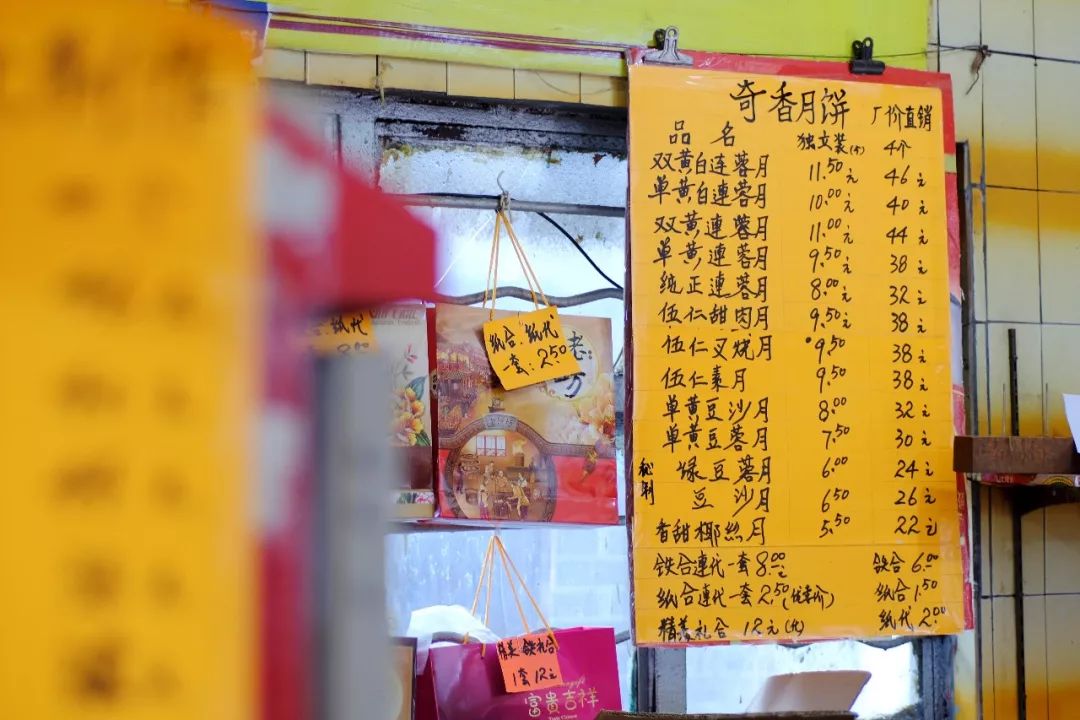 奇香月饼 厂价直销
品名 独立装(个) 4个
双黄白连蓉月 11.50元 46元
单黄白連蓉月 10.00元 40元
双黄連蓉月 11.00元 44元
单黄連蓉月 9.50元 38元
純正連蓉月 8.00元 32元
伍仁甜肉月 9.50元 38元
伍仁叉烧月 9.50 38元
伍仁素月 9.50 38元
单黄豆沙月 8.00 32元
单黄豆蓉月 7.50 30元
秘制
绿豆蓉月 6.00 24元
豆沙月 6.50 26元
香甜椰絲月 5.50 22元
铁合連代一套8.00元 铁合6.00
纸合連代一套2.50(优惠价) 纸合1.50
精美礼合 12元(代) 纸代2.00
纸合:纸代
一套:2.50
纸代
精美 铁礼合
1套12元
富貴吉祥